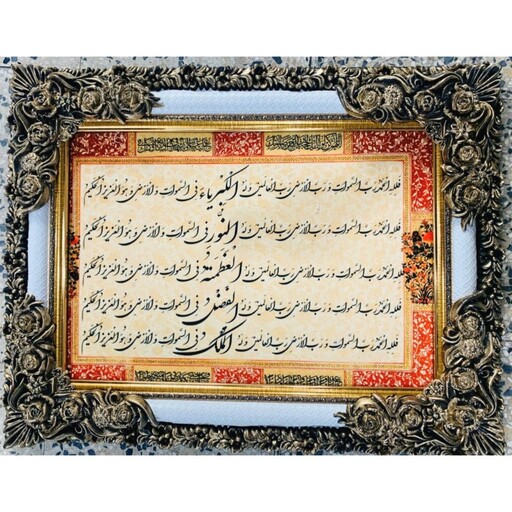 فلله الحمد رب السموات و رب الارض رب العالمین و له الکبریاء فی السموات و الارض و هو العزیز الحکیم
فلله الحمد رب السموات و رب الارض رب العالمین و له النور فی السموات و الارض و هو العزیز الحکیم
فلله الحمد رب السموات و رب الارض رب العالمین و له العظمة فی السموات و الارض و هو العزیز الحکیم
فلله الحمد رب السموات و رب الارض رب العالمین و له الفضل فی السموات و الارض و هو العزیز الحکیم
فلله الحمد رب السموات و رب الارض رب العالمین و له الملک فی السموات و الارض و هو العزیز الحکیم